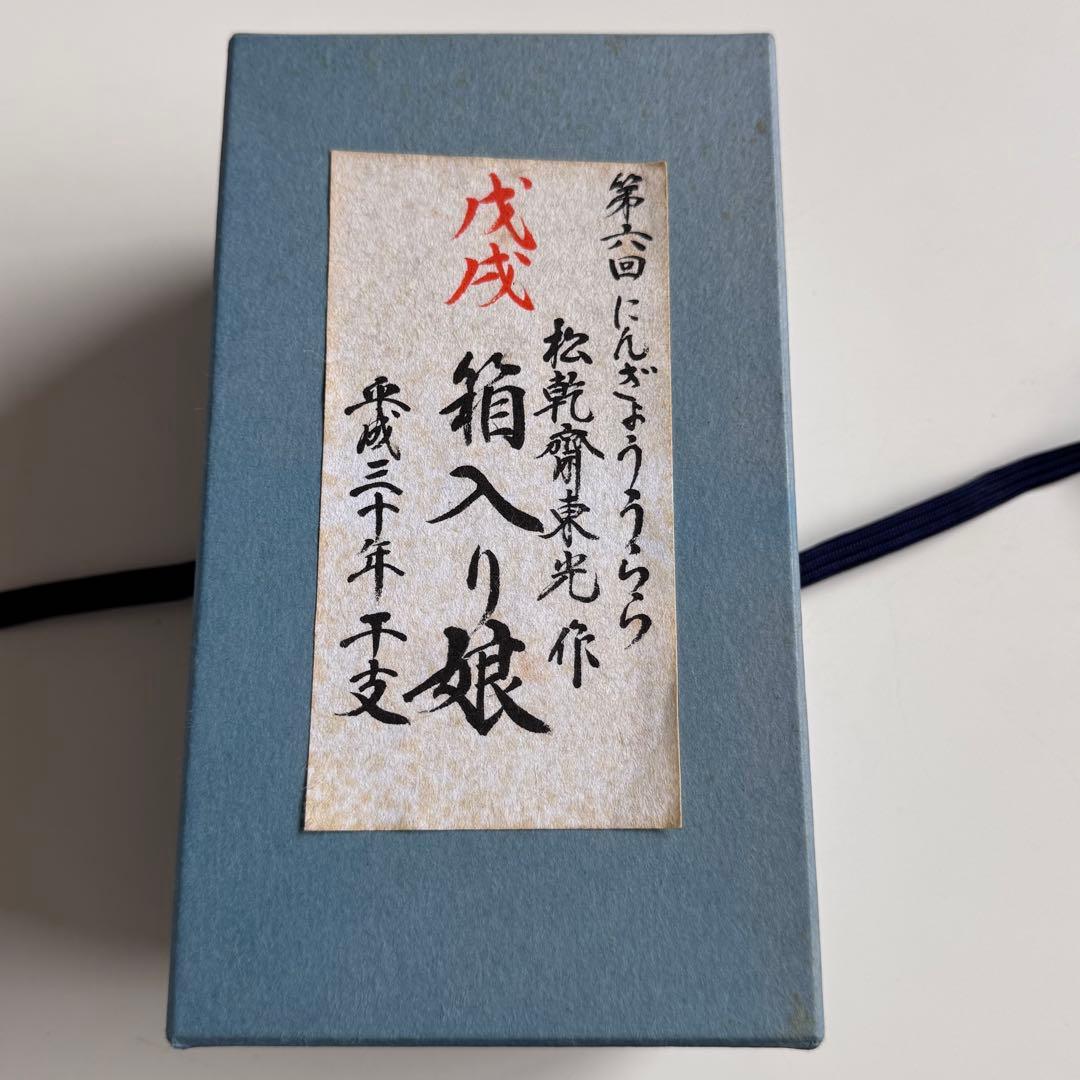 第六回にんぎょううらら
松乾齋東光 作
戊戌 箱入り娘
平成三十年 干支